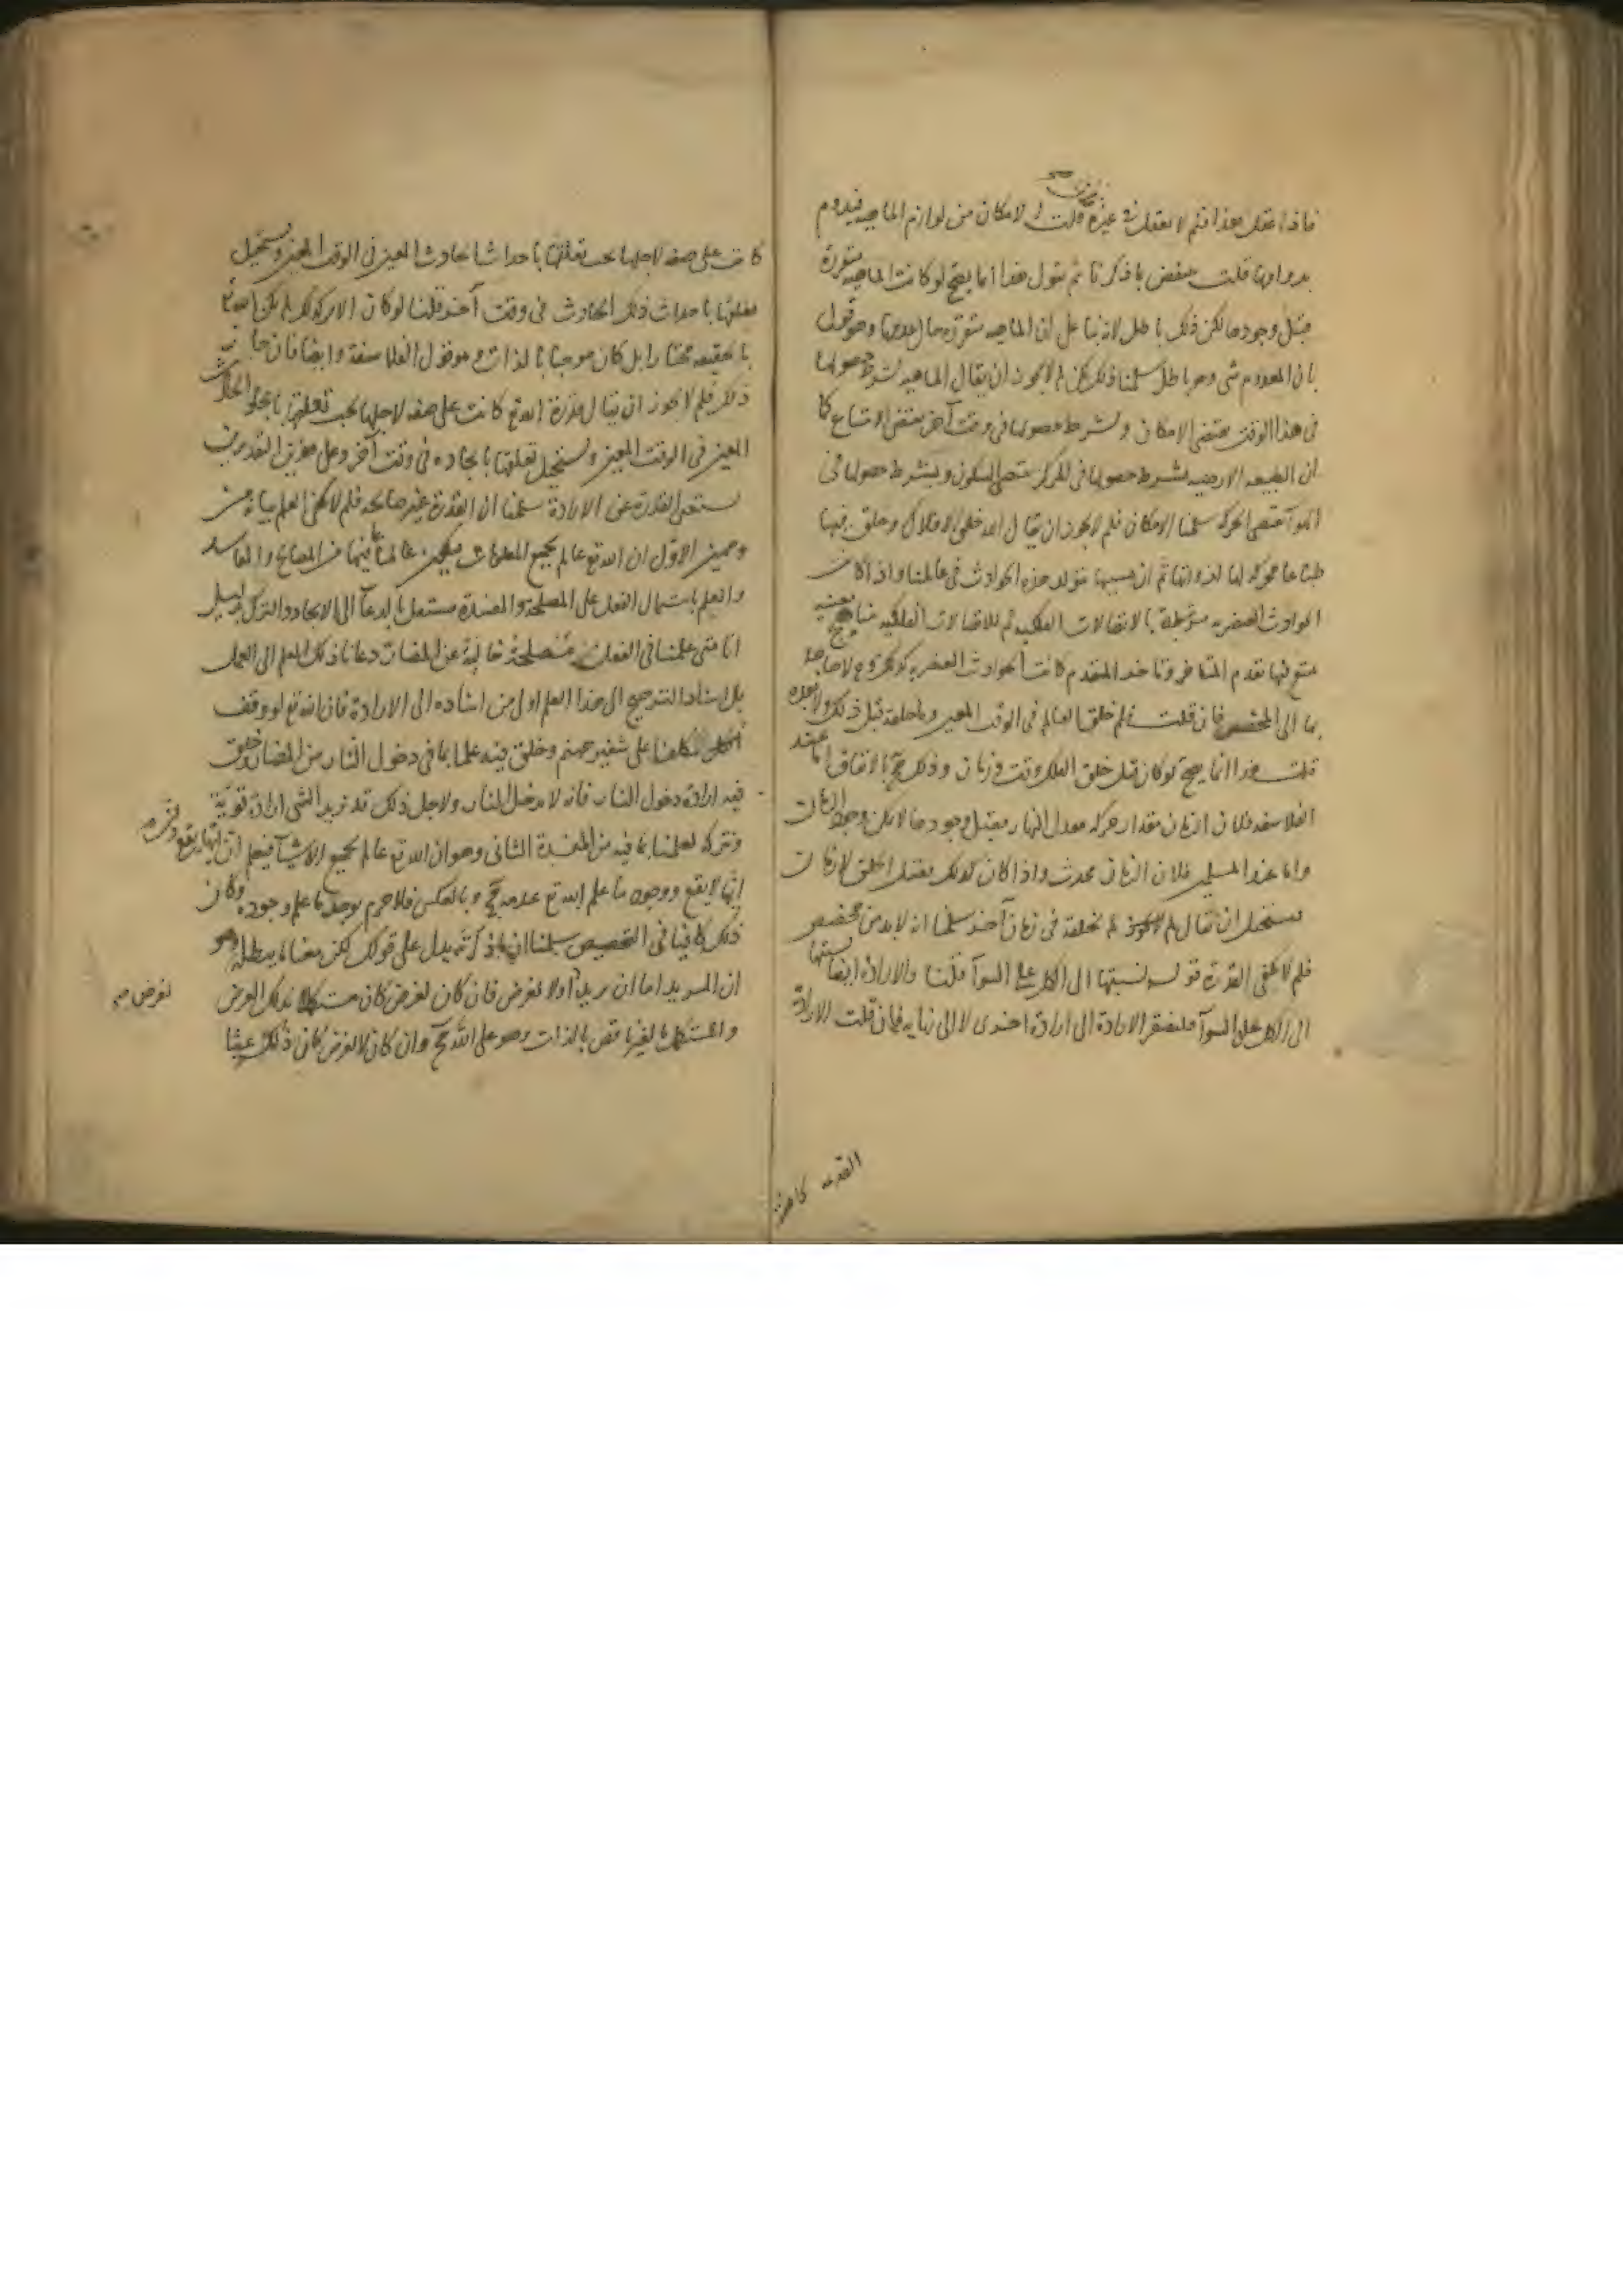 فاذا عقل هذا فلم لا يعقل في غيره قلت الامكان من لوازم الماهيه فيدوم
بدوامها قلت ينتقض بما ذكرنا ثم نقول هذا انما يصح لو كانت الماهيه متقررة
قبل وجودها لكن ذلك باطل لانه بنا على ان الماهيه متقرره حال عدمها وهو قول
بان المعدوم شى وهو باطل سلمنا ذلك لكن لم لا يجوز ان يقال الماهيه بشرط حصولها
فى هذا الوقت يقتضى الامكان وبشرط حصولها فى وقت آخر يقتضى الامتناع كما
ان الطبيعه الارضيه بشرط حصولها فى المركز يقتضى السكون وبشرط حصولها فى
الهوآ يقتضى الحركه سلمنا الامكان فلم لا يجوز ان يقال الله خلق الافلاك وخلق فيها
طباعا محركه لها لذواتها ثم ان بسببها تتولد هذه الحوادث فى عالمنا واذا كانت
الحوادث العنصريه مرتبطة بالاتصالات الفلكيه ثم للاتصالات الفلكيه مناهج معينه
يمتنع فيها تقدم المتاخر وتاخر المتقدم كانت الحوادث العنصريه كذلك وح لا حاجة
بها الى المخصص فان قلت فلم خلق العالم فى الوقت المعين وما خلقه قبل ذلك ولا بعده
قلت هذا انما يصح لو كان قبل خلق الفلك وقت وزمان وذلك مح بالاتفاق اما عند
الفلاسفه فلان الزمان مقدار حركه معدل النهار فقبل وجودها لا يمكن وجود الزمان
واما عند المسلمين فلان الزمان محدث واذا كان كذلك فقبل الخلق لا زمان
يستحيل ان يقال لم لم يخلقه فى زمان آخر سلمنا انه لا بد من مخصص
فلم لا يكفى القدرة قوله نسبتها الى الكل على السوآ قلنا والارادة ايضا نسبتها
الى الكل على السوآ فليفتقر الارادة الى ارادة اخرى لا الى نهايه فان قلت الارادة
القديمه كانت
كانت على صفه لاجلها يجب تعلقها باحداث الحادث المعين فى الوقت المعين ويستحيل
تعلقها باحداث ذلك الحادث فى وقت آخر قلنا لو كان الامر كذلك لم يكن الله تع
بالحقيقه مختارا بل كان موجبا بالذات وهو قول الفلاسفة وايضا فان جاز
ذلك فلم لا يجوز ان يقال قدرة الله تع كانت على صفه لاجلها يجب تعلقها بايجاد الحادث
المعين فى الوقت المعين ويستحيل تعلقها بايجاده فى وقت آخر وعلى هذين التقديرين
يستغنى القدرة عن الارادة سلمنا ان القدرة غير صالحه فلم لا يكفى العلم بيانه من
وجهين الاول ان الله تع عالم بجميع المعلومات فيكون عالما بما فيها من المصالح والمفاسد
والعلم باشتمال الفعل على المصلحة والمفسدة مستقل بالدعآ الى الايجاد والترك بدليل
انا متى علمنا فى الفعل مصلحة خالية عن المضار دعانا ذلك العلم الى العمل
بل اسناد الترجيح الى هذا العلم اولى من اسناده الى الارادة فان الله تع لو وقف
مكلفا على شفير جهنم وخلق فيه علما بما فى دخول النار من المضار وخلق
فيه ارادة دخول النار فانه لا يدخل النار ولاجل ذلك قد نريد الشى ارادة قوية
ونتركه لعلمنا بما فيه من المفسدة الثانى وهو ان الله تع عالم بجميع الاشيآ فيعلم ان ايها يقع
ايها لا يقع ووجود ما علم الله تع عدمه مح وبالعكس فلا جرم يوجد ما علم وجوده وكان
ذلك كافيا فى التخصيص سلمنا ان ما ذكرته يدل على قولك لكن معنا ما يبطله وهو
ان المريد اما ان يريد لغرض او لا لغرض فان كان لغرض كان مستكملا بذلك الغرض
والمستكمل بالغير ناقص بالذات وهو على الله مح وان كان لا لغرض كان ذلك عبثا
لغرض صح